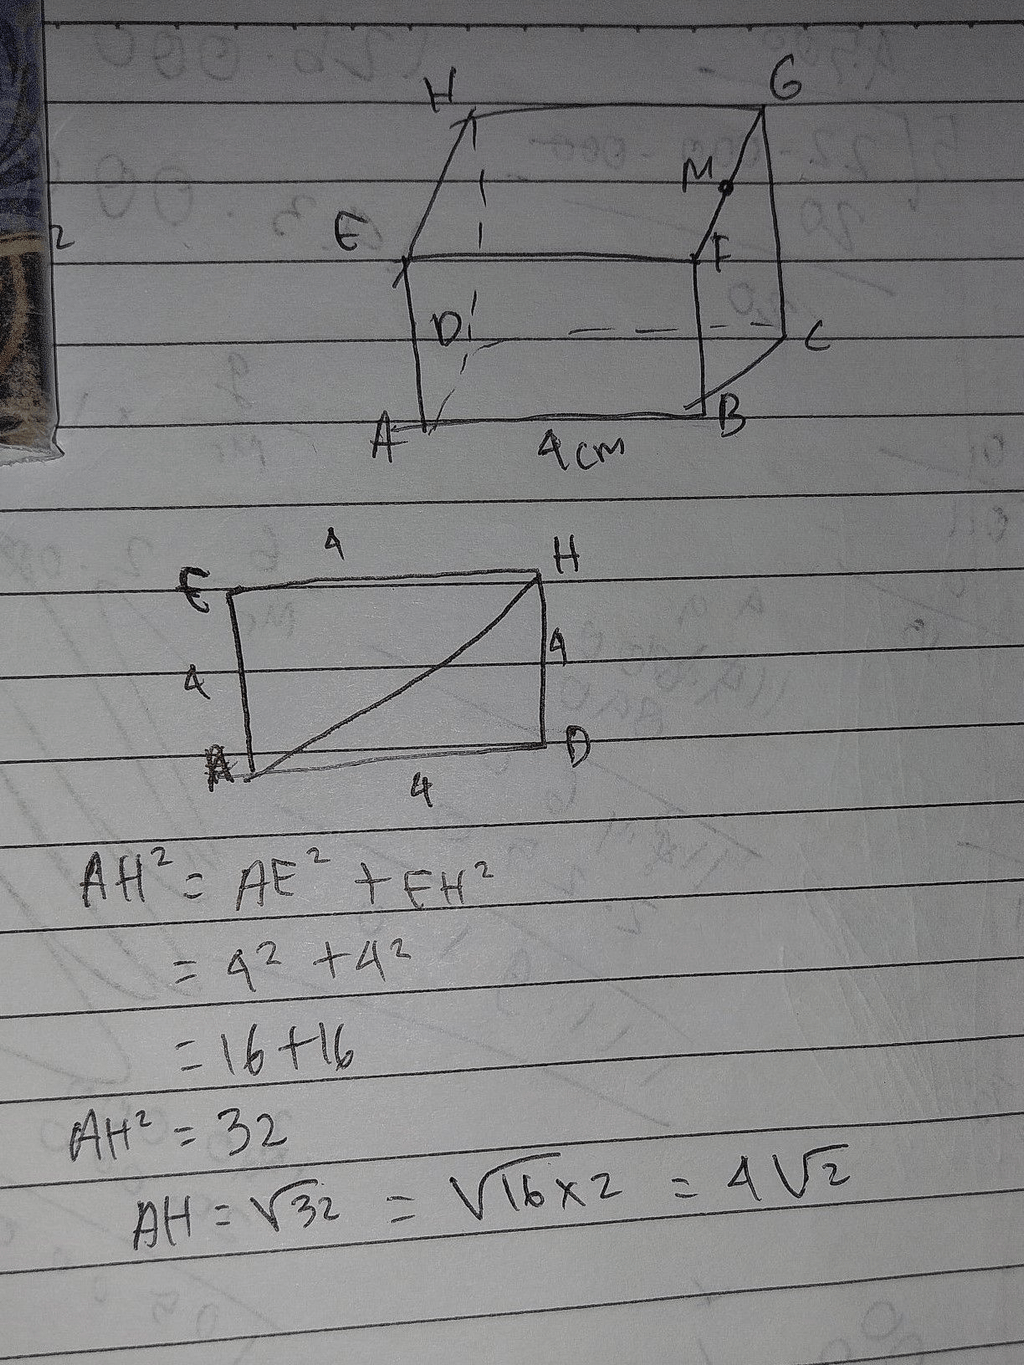 H G
M
E F
D C
A B
4 cm
4
E H
4 4
A D
4
AH² = AE² + EH²
= 4² + 4²
= 16 + 16
AH² = 32
AH = √32 = √16×2 = 4√2